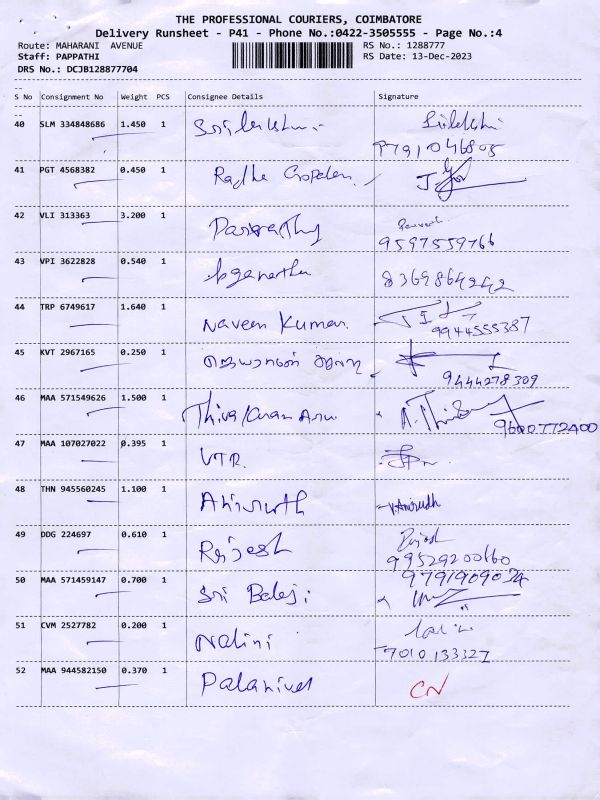 THE PROFESSIONAL COURIERS, COIMBATORE
Delivery Runsheet - P41 - Phone No.:0422-3505555 - Page No.:4
Route: MAHARANI AVENUE RS No.: 1288777
Staff: PAPPATHI RS Date: 13-Dec-2023
DRS No.: DCJB128877704
S No Consignment No Weight PCS Consignee Details Signature
40 SLM 334848686 1.450 1
41 PGT 4568382 0.450 1 Radha Gopalan
42 VLI 313363 3.200 1 Parvathy
9597559766
43 VPI 3622828 0.540 1
8369864242
44 TRP 6749617 1.640 1 Naveen Kumar.
9944555387
45 KVT 2967165 0.250 1
9444278309
46 MAA 571549626 1.500 1 Thivakaran
9600772400
47 MAA 107027022 0.395 1 VTR.
48 THN 945560245 1.100 1 Anirudh V.Anirudh
49 DDG 224697 0.610 1 Rajesh
9952920060
50 MAA 571459147 0.700 1 Sri Balaji
51 CVM 2527782 0.200 1 Nalini
7010133327
52 MAA 944582150 0.370 1 Palanivel CN